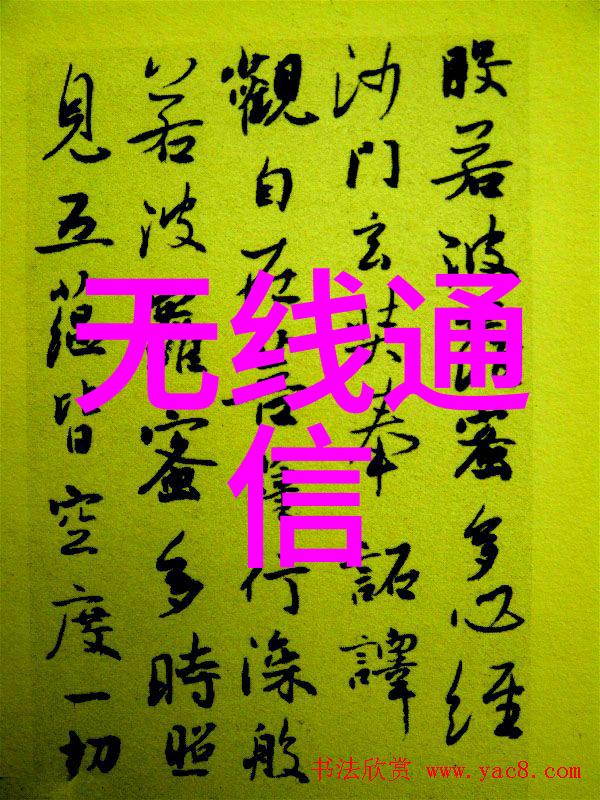 般若波羅蜜多心經
沙門玄奘奉 詔譯
觀自在菩薩行深般
若波羅蜜多時照
見五蘊皆空度一切
无线通
信
书法欣赏 www.yac8.com